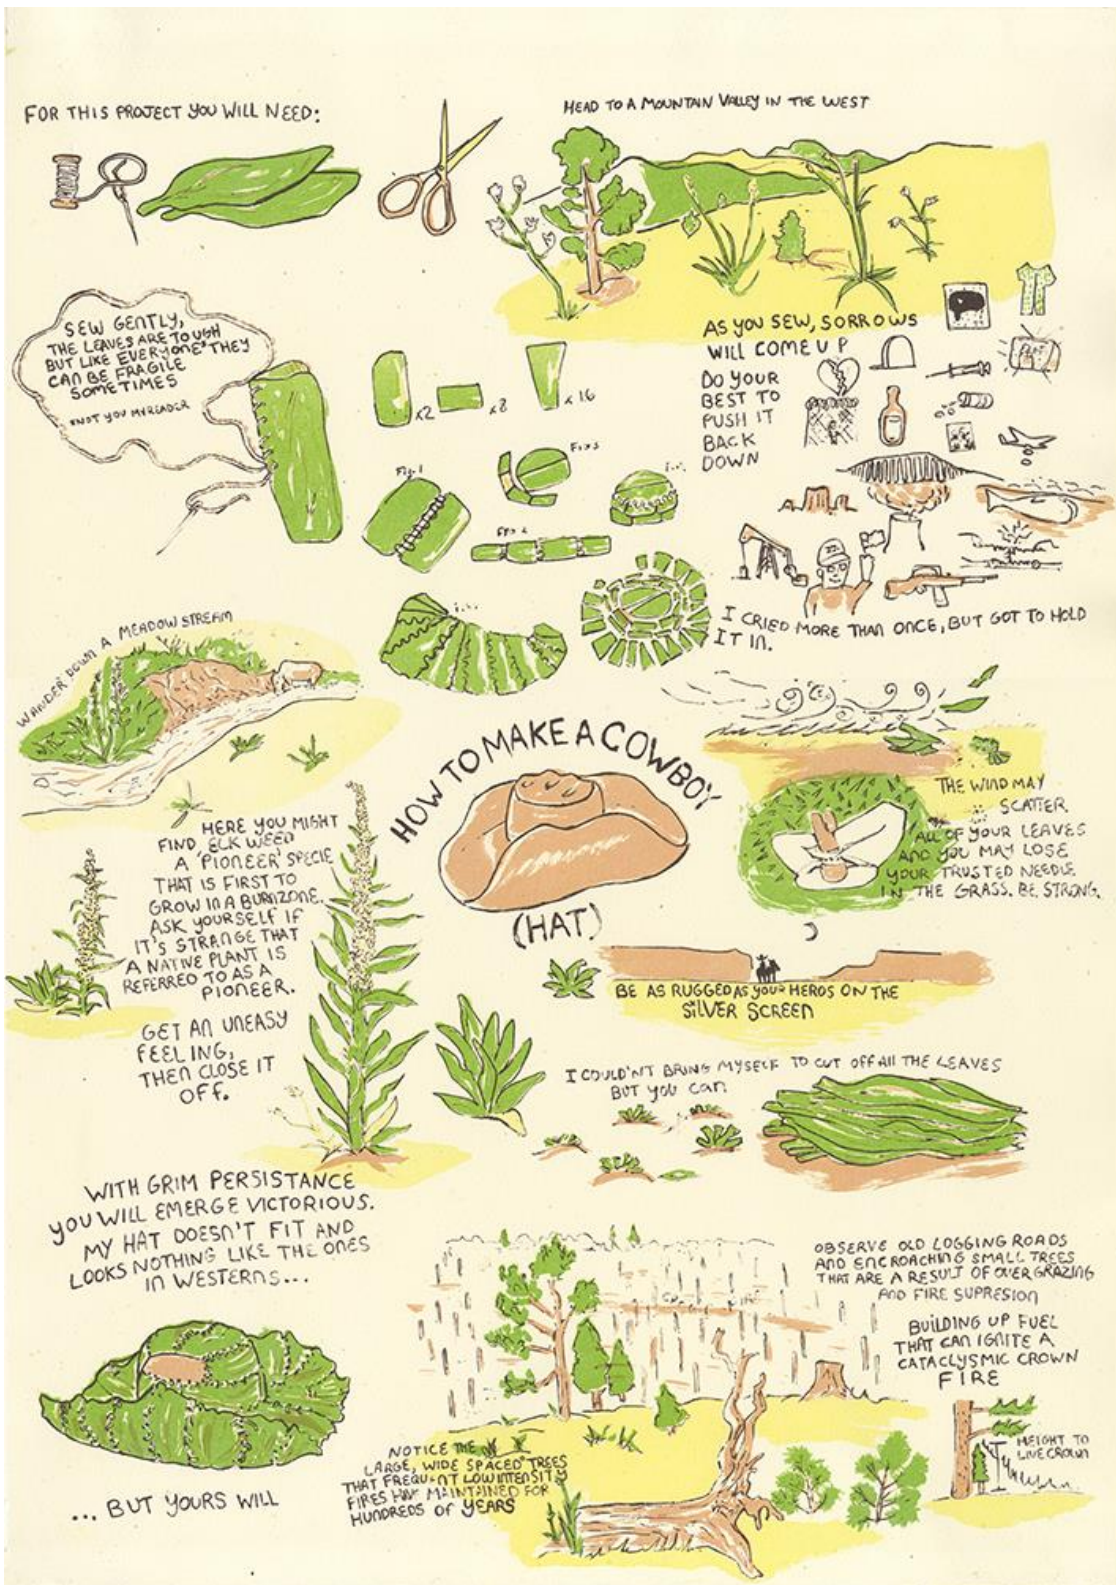 FOR THIS PROJECT YOU WILL NEED:
HEAD TO A MOUNTAIN VALLEY IN THE WEST
SEW GENTLY,
THE LEAVES ARE TOUGH
BUT LIKE EVERYONE* THEY
CAN BE FRAGILE
SOMETIMES
*NOT YOU MY READER
x2
x8
x16
Fig 1
Fig 3
Fig 2
AS YOU SEW, SORROWS
WILL COME UP
DO YOUR
BEST TO
PUSH IT
BACK
DOWN
I CRIED MORE THAN ONCE, BUT GOT TO HOLD
IT IN.
WANDER DOWN A MEADOW STREAM
HOW TO MAKE A COWBOY
(HAT)
THE WIND MAY
SCATTER
ALL OF YOUR LEAVES
AND YOU MAY LOSE
YOUR TRUSTED NEEDLE
IN THE GRASS. BE STRONG.
HERE YOU MIGHT
FIND ELK WEED
A 'PIONEER' SPECIE
THAT IS FIRST TO
GROW IN A BURNZONE.
ASK YOURSELF IF
IT'S STRANGE THAT
A NATIVE PLANT IS
REFERRED TO AS A
PIONEER.
GET AN UNEASY
FEELING,
THEN CLOSE IT
OFF.
BE AS RUGGED AS YOUR HEROS ON THE
SILVER SCREEN
I COULDN'T BRING MYSELF TO CUT OFF All THE LEAVES
BUT YOU CAN
WITH GRIM PERSISTANCE
YOU WILL EMERGE VICTORIOUS.
MY HAT DOESN'T FIT AND
LOOKS NOTHING LIKE THE ONES
IN WESTERNS...
... BUT YOURS WILL
OBSERVE OLD LOGGING ROADS
AND ENCROACHING SMALL TREES
THAT ARE A RESULT OF OVER GRAZING
AND FIRE SUPRESION
BUILDING UP FUEL
THAT CAN IGNITE A
CATACLYSMIC CROWN
FIRE
HEIGHT TO
LIVE CROWN
NOTICE THE
LARGE, WIDE SPACED TREES
THAT FREQUENT LOW INTENSITY
FIRES HAVE MAINTAINED FOR
HUNDREDS OF YEARS